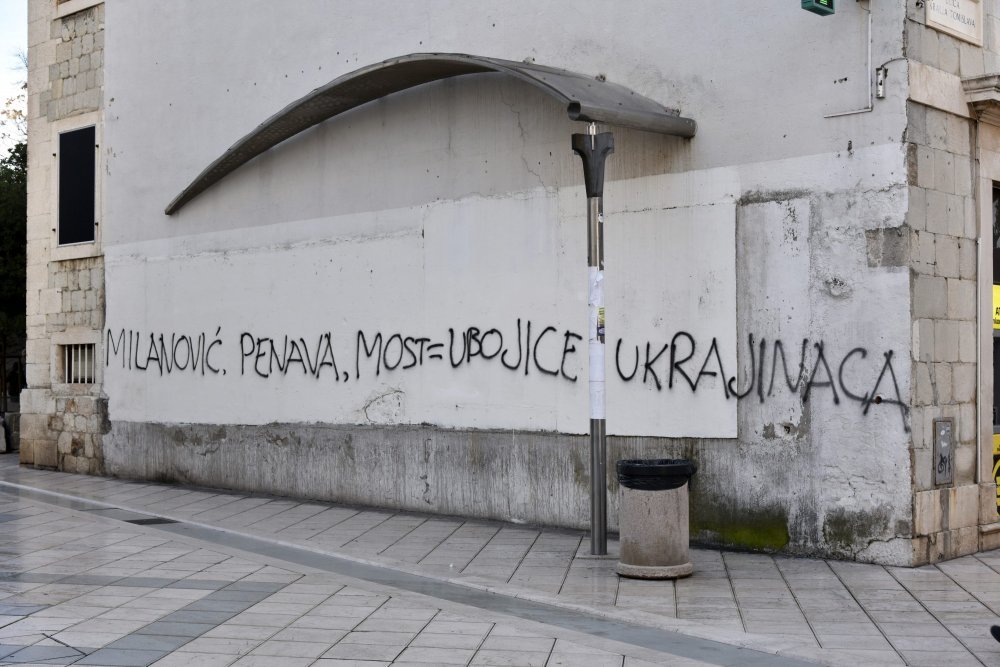 KRALJA TOMISLAVA
MILANOVIĆ, PENAVA, MOST=UBOJICE UKRAJINACA